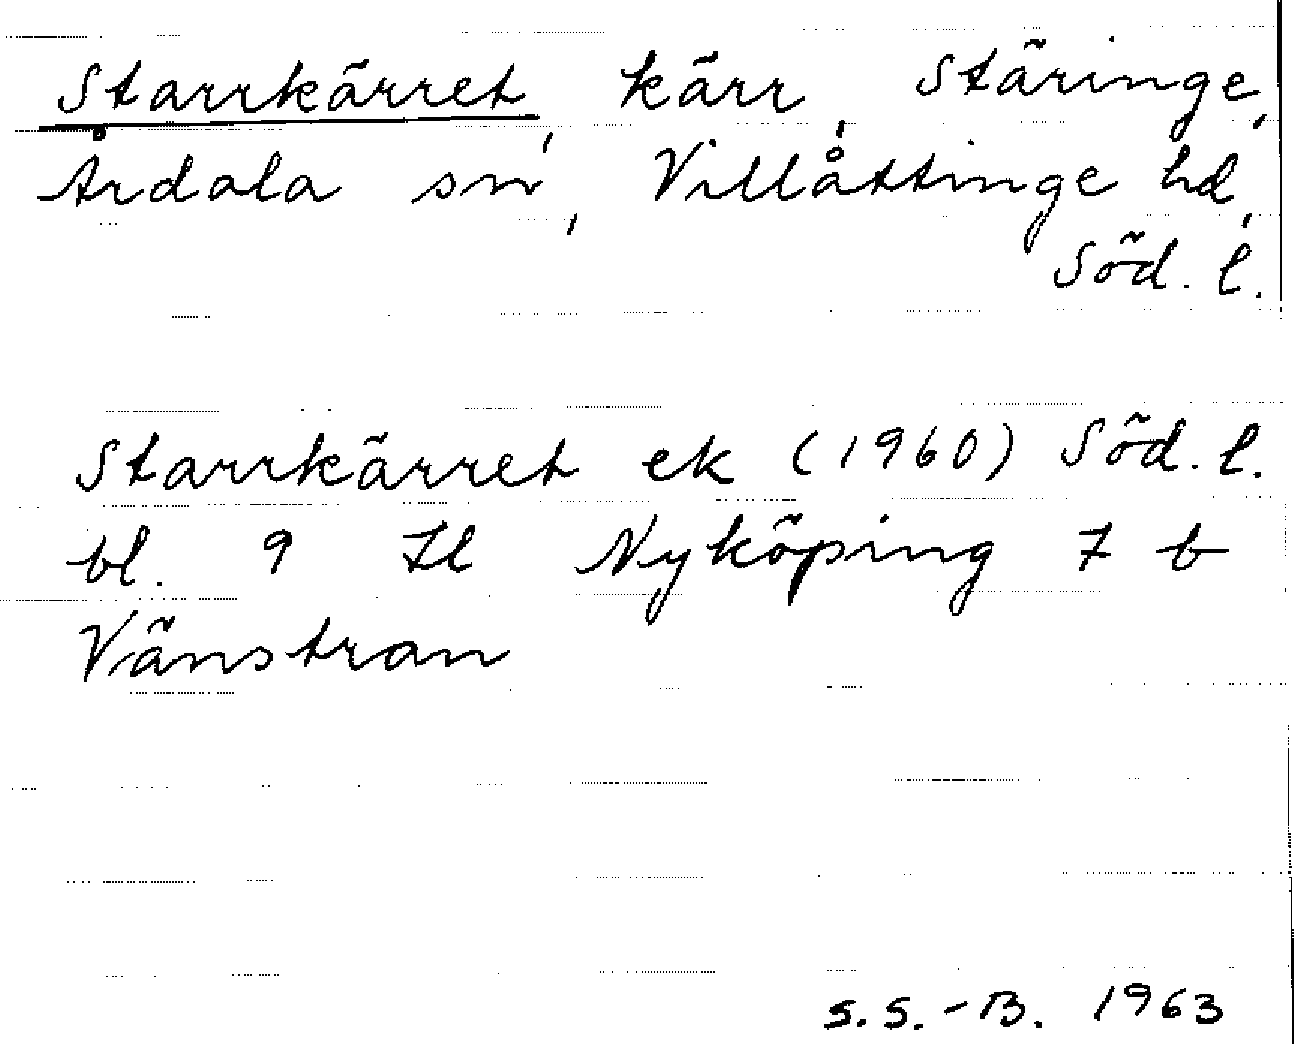 Starrkärret, kärr, Stäringe,
Årdala sn, Villåttinge hd,
Söd. l.
Starrkärret ek (1960) Söd. l.
bl. 9 Il Nyköping 7 b
Vänstran
S.S.-B. 1963